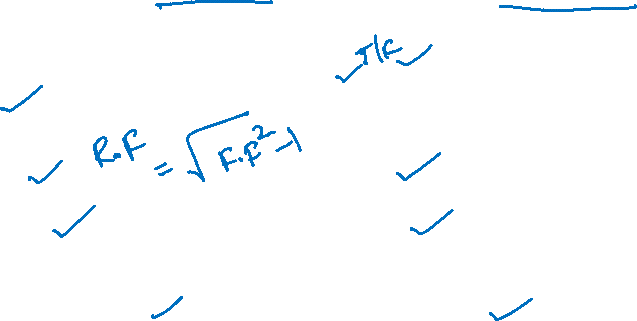 T/F
R.F = √F.F²-1